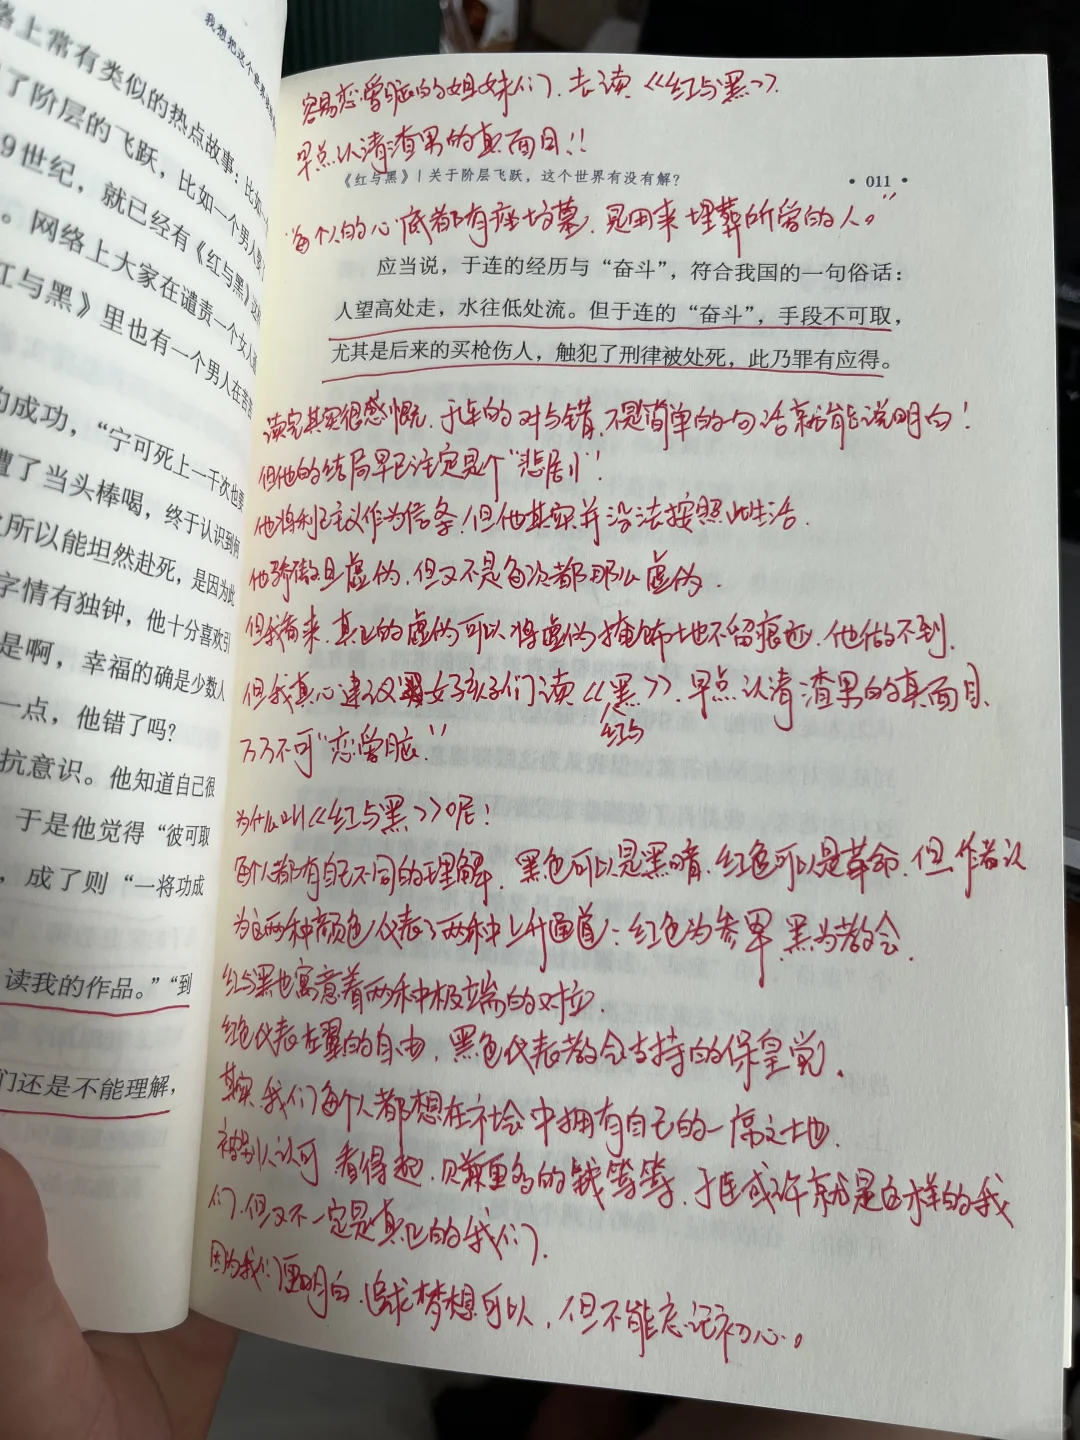 我想把这个世界
络上常有类似的热点故事：比如一
了阶层的飞跃，比如一个男人
9世纪，就已经有《红与黑》
。网络上大家在谴责一个女人
红与黑》里也有一个男人在苦
的成功，“宁可死上一千次也要
遭了当头棒喝，终于认识到何
之所以能坦然赴死，是因为此
字情有独钟，他十分喜欢引
是啊，幸福的确是少数人
一点，他错了吗？
抗意识。他知道自己很
于是他觉得“彼可取
，成了则“一将功成
读我的作品。”“到
们还是不能理解，
容易恋爱脑的姐妹们、去读《红与黑》.
早点认清渣男的真面目！！
《红与黑》| 关于阶层飞跃，这个世界有没有解？ • 011 •
“每个人的心底都有座坟墓、是用来埋葬所爱的人。”
应当说，于连的经历与“奋斗”，符合我国的一句俗话：
人望高处走，水往低处流。但于连的“奋斗”，手段不可取，
尤其是后来的买枪伤人，触犯了刑律被处死，此乃罪有应得。
读完其实很感慨、于连的对与错、不是简单的句话就能说明白！
但他的结局早已注定是个“悲剧”！
他将利己主义作为信条、但他其实并没法按照此生活.
他骄傲且虚伪、但又不是每次都那么虚伪.
但我看来、真正的虚伪可以将虚伪掩饰地不留痕迹、他做不到.
但我真心建议女孩子们读《红与黑》、早点认清渣男的真面目、
万万不可“恋爱脑.”
为什么叫《红与黑》呢！
每个人都有自己不同的理解、黑色可以是黑暗、红色可以是革命、但作者认
为这两种颜色代表了两种上升通道：红色为参军、黑为教会.
红与黑也寓意着两种极端的对立.
红色代表左翼的自由、黑色代表教会支持的保皇党、
其实、我们每个人都想在社会中拥有自己的一席之地.
被别人认可 看得起、赚更多的钱等等、于连或许就是这样的我
们、但又不一定是真正的我们.
因为我们要明白、追求梦想可以、但不能忘记初心。